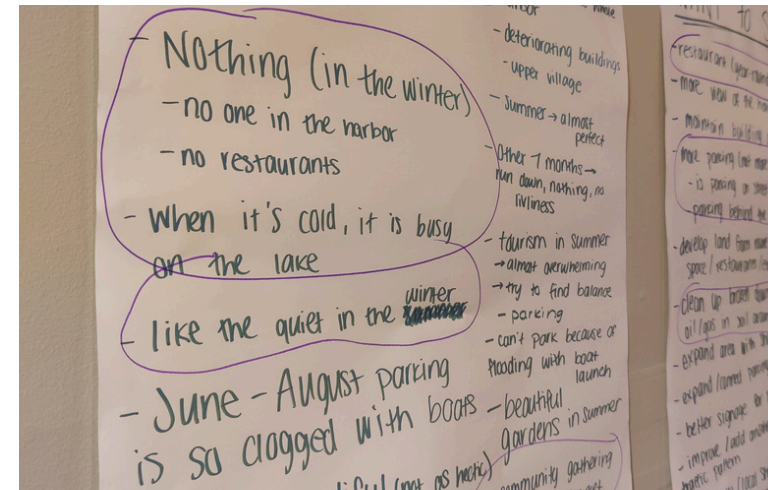 - Nothing (in the winter)
- no one in the harbor
- no restaurants
- When it's cold, it is busy
on the lake
- like the quiet in the winter
- June - August parking
is so clogged with boats
(not as hectic)
- deteriorating buildings
- upper village
- Summer → almost
perfect
- Other 7 months →
run down, nothing, no
livliness
- tourism in summer
→ almost overwhelming
→ try to find balance
- parking
- can't park because of
flooding with boat
launch
- beautiful
gardens in summer
community gathering
to
- restaurant (year-round
- more view of the
- maintain building
- more parking (not more
- is parking on street
parking behind the
- develop land from
space / restaurants
- clean up
oil/gas in soil
- expand area with
- expand /
- better signage for
- improve / add
traffic pattern